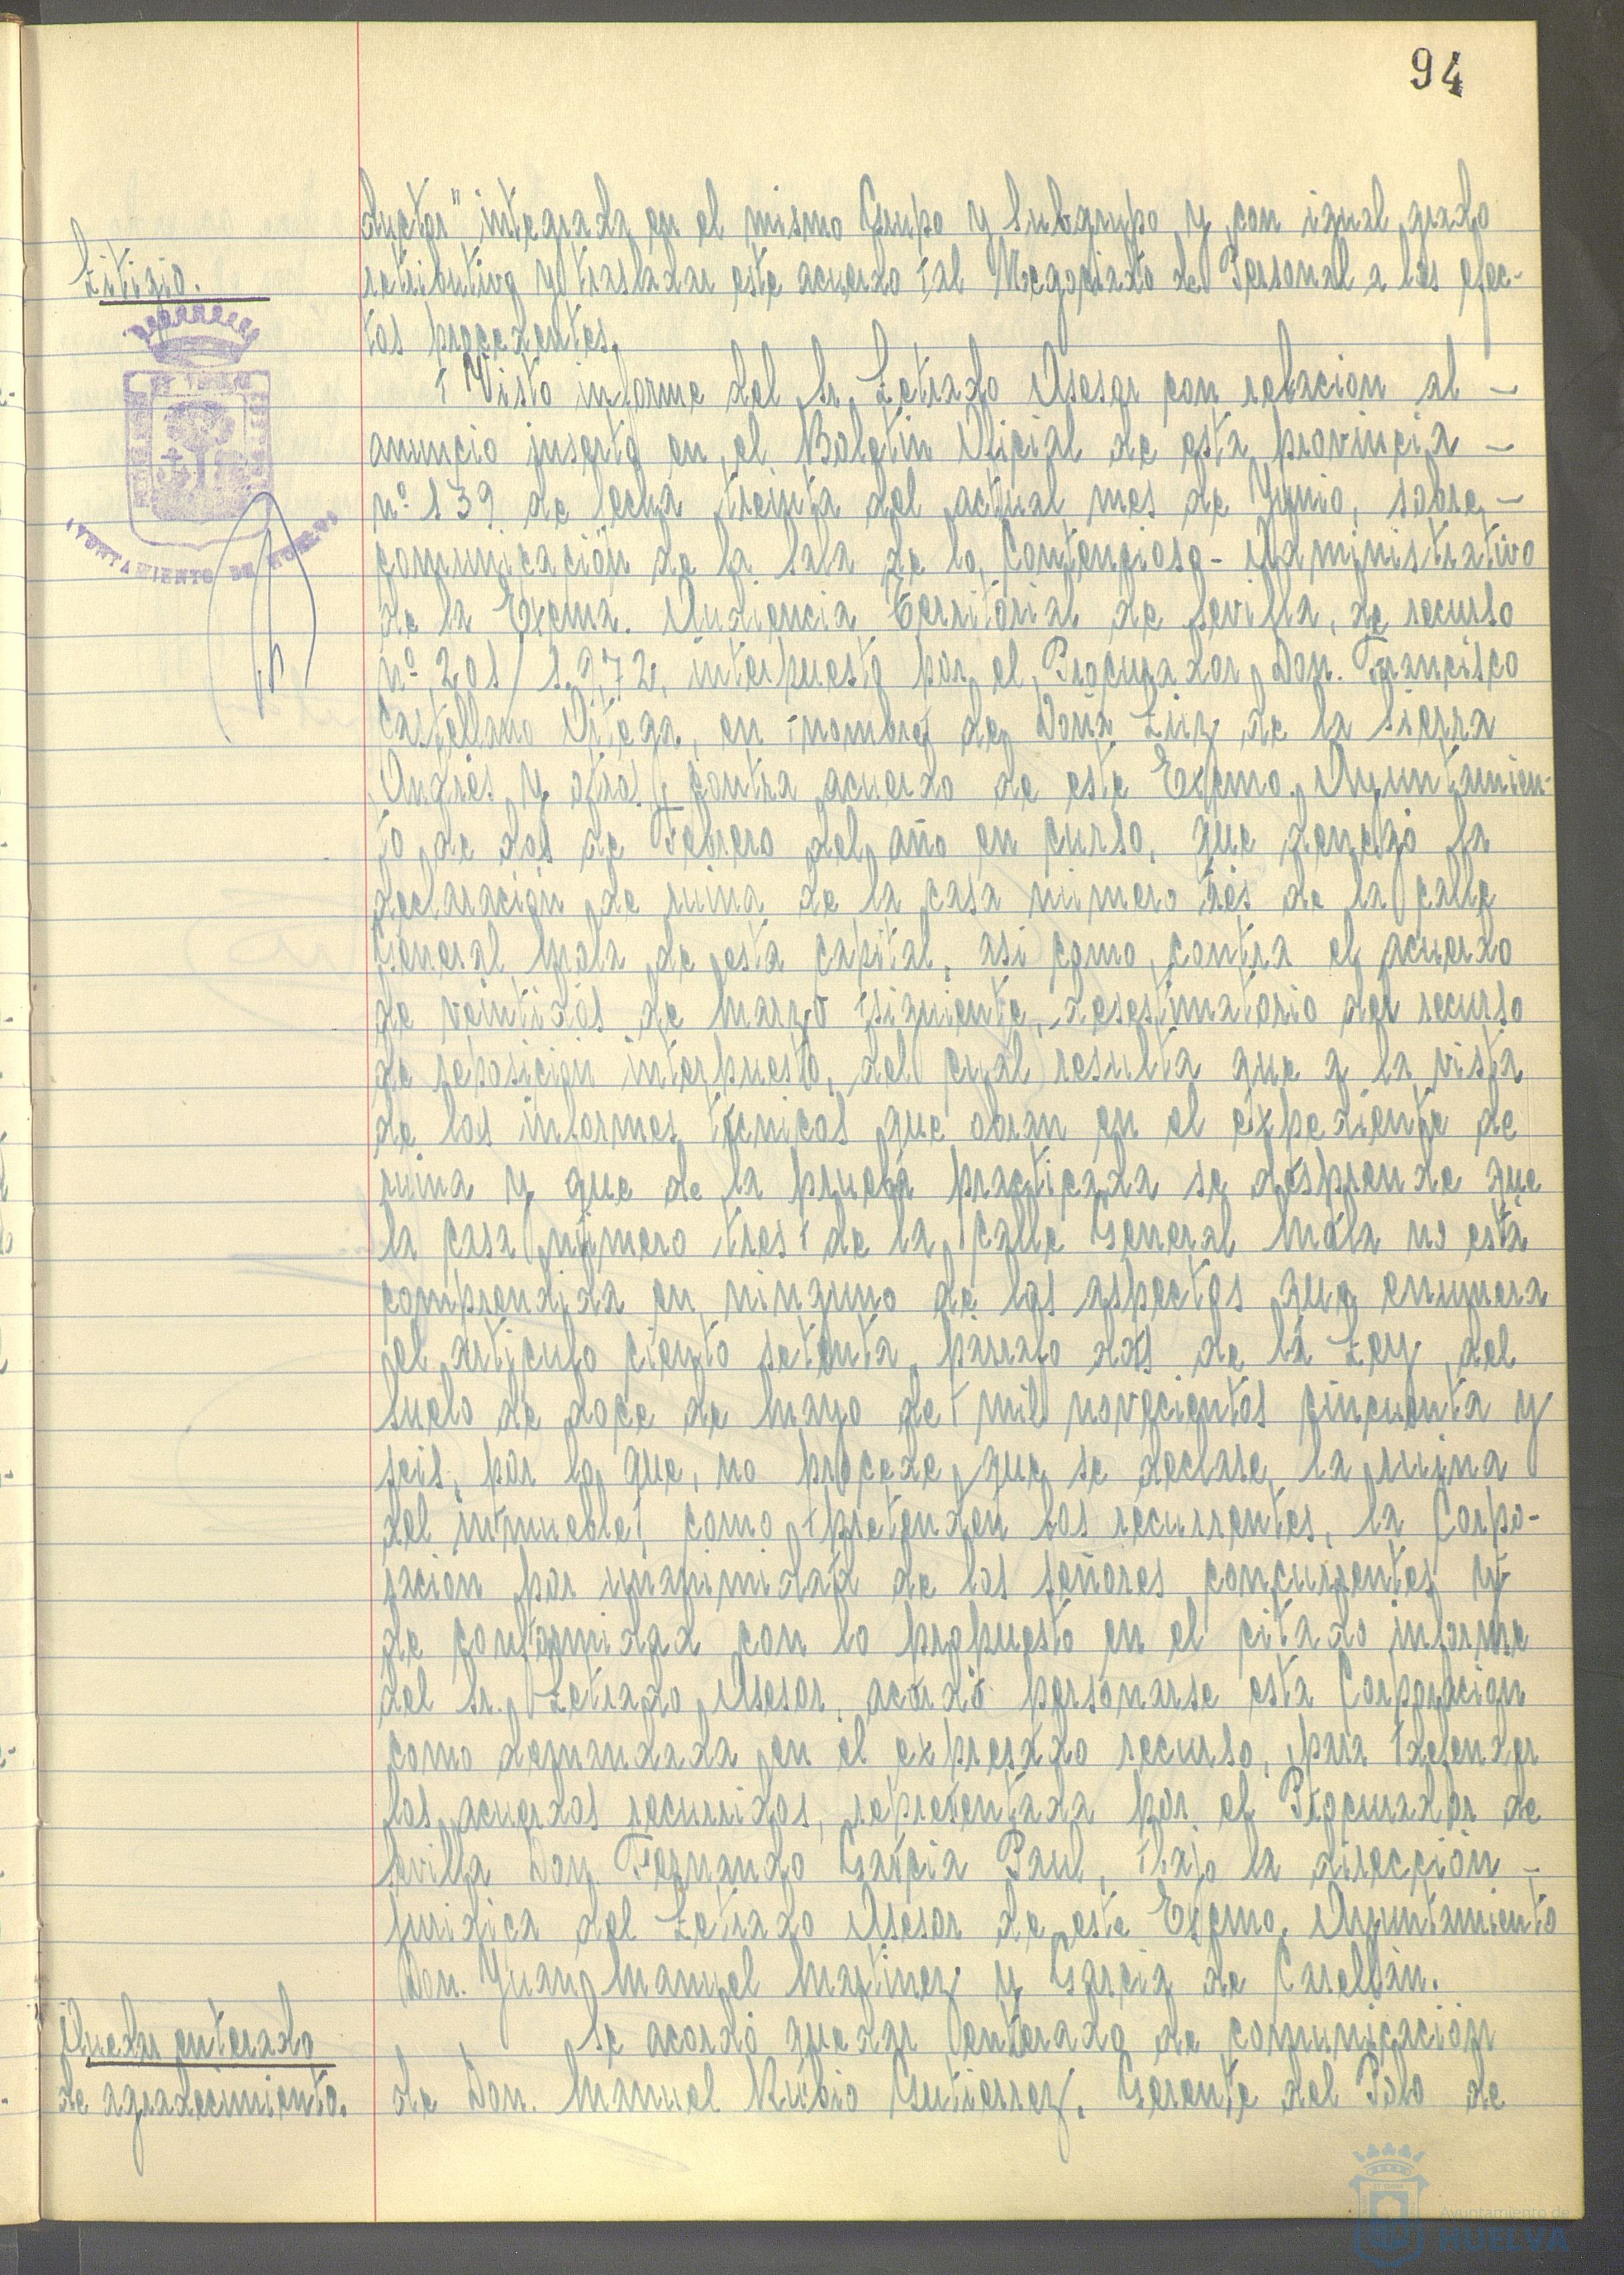 94
ductor" integrada en el mismo Grupo y Subgrupo y con igual grado
Litigio.
retributivo y trasladar este acuerdo al Negociado de Personal a los efec-
tos procedentes.
Visto informe del Sr. Letrado Asesor con relacion al -
anuncio inserto en el Boletin Oficial de esta provincia -
nº 139 de fecha treinta del actual mes de Junio, sobre -
comunicación de la Sala de lo Contencioso-Administrativo
AYUNTAMIENTO DE HUELVA
de la Excma. Audiencia Territorial de Sevilla, de recurso
nº 201/1.972, interpuesto por el Procurador Don. Francisco
Castellano Ortega, en nombre de Doña Luz de la Sierra
Andres y otros, contra acuerdo de este Excmo. Ayuntamien-
to de dos de Febrero del año en curso, que denegó la
declaración de ruina de la casa número tres de la calle
General Mola de esta capital, asi como contra el acuerdo
de veintidós de Marzo siguiente, desestimatorio del recurso
de reposición interpuesto, del cual resulta que a la vista
de los informes técnicos que obran en el expediente de
ruina y que de la prueba practicada se desprende que
la casa número tres de la calle General Mola no está
comprendida en ninguno de los aspectos que enumera
el artículo ciento setenta, párrafo dos de la Ley del
Suelo de doce de Mayo de mil novecientos cincuenta y
seis, por lo que, no procede que se declare la ruina
del inmueble, como pretenden los recurrentes, la Corpo-
racion por unanimidad de los señores concurrentes y
de conformidad con lo propuesto en el citado informe
del Sr. Letrado Asesor, acordó personarse esta Corporacion
como demandada en el expresado recurso, para defender
los acuerdos recurridos, representada por el Procurador de
Sevilla Don Fernando García Paul, bajo la dirección -
Juridica del Letrado Asesor de este Excmo. Ayuntamiento
Don. Juan Manuel Martinez y Garcia de
Quedar enterado
Se acordó quedar enterado de comunicación
de agradecimiento.
de Don. Manuel Rubio Gutierrez, Gerente del Polo de
Ayuntamiento de
HUELVA